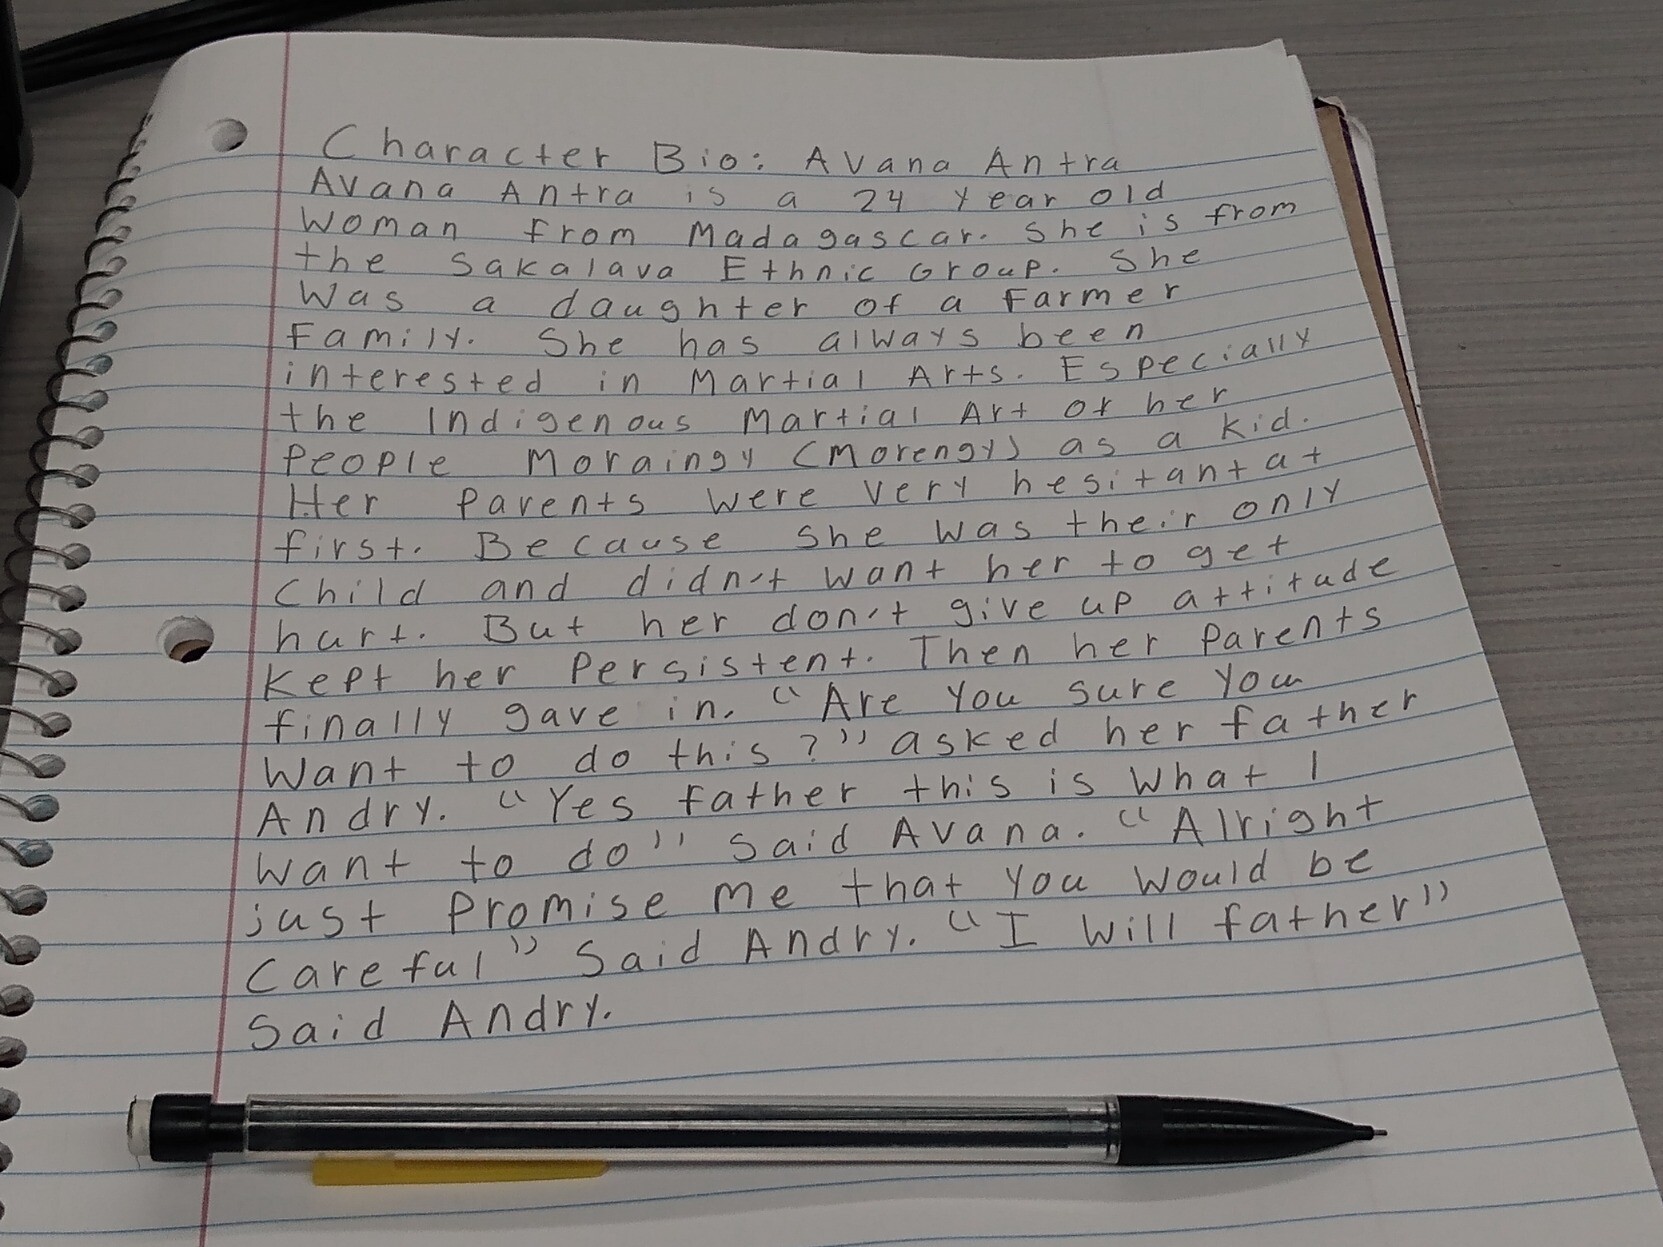 Character Bio: Avana Antra
Avana Antra is a 24 year old
woman from Madagascar. She is from
the Sakalava Ethnic Group. She
was a daughter of a farmer
family. She has always been
interested in Martial Arts. Especially
the Indigenous Martial Art of her
people Moraingy (Morengy) as a kid.
Her parents were very hesitant at
first. Because she was their only
child and didn't want her to get
hurt. But her don't give up attitude
kept her persistent. Then her parents
finally gave in. "Are you sure you
want to do this?" asked her father
Andry. "Yes father this is what I
want to do" said Avana. "Alright
just promise me that you would be
careful" said Andry. "I will father"
said Andry.